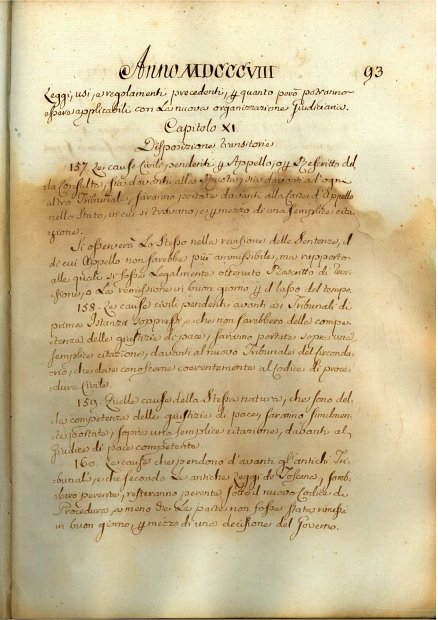 Anno MDCCCVIII 93
Leggi, usi, e regolamenti precedenti, p quanto però potranno
essere applicabili con la nuova organizzazione Giudiciaria.
Capitolo XI.
Disposizione transitorie
157. Le cause Civili pendenti p Appello, o p Rescritto del
la Consulta, sia davanti alla Ruota, sia davanti ad ogni
altro Tribunale, saranno portate davanti alla Corte d'Appello
nello Stato, in cui si trovano, e p mezzo di una semplice cita
zione.
Si osserverà lo stesso nella revisione delle Sentenze, il
di cui Appello non sarebbe più ammissibile, ma rapporto
alle quali si fosse legalmente ottenuto Rescritto di Revi
sione, o la rimissione in buon giorno p il lasso del tempo.
158. Le cause civili pendenti avanti ai Tribunali di
prima Istanza soppressi, e che non sarebbero della compe
tenza delle giustizie di pace, saranno portate sopra una
semplice citazione, davanti al nuovo Tribunale del Circonda
rio, che deve conoscerne coerentemente al Codice di Proce
dura Civile.
159. Quelle cause della stessa natura, che sono del
la competenza delle giustizie di pace, saranno similmen
te portate, sopra una semplice citazione, davanti al
Giudice di pace competente.
160. Le cause che pendono d'avanti gl'antichi Tri
bunali, e che secondo le antiche Leggi di Toscana, sareb
bero perente, resteranno perente sotto il nuovo Codice di
Procedura, a meno che la parte non fosse stata rimessa
in buon giorno, p mezzo di una decisione del Governo.